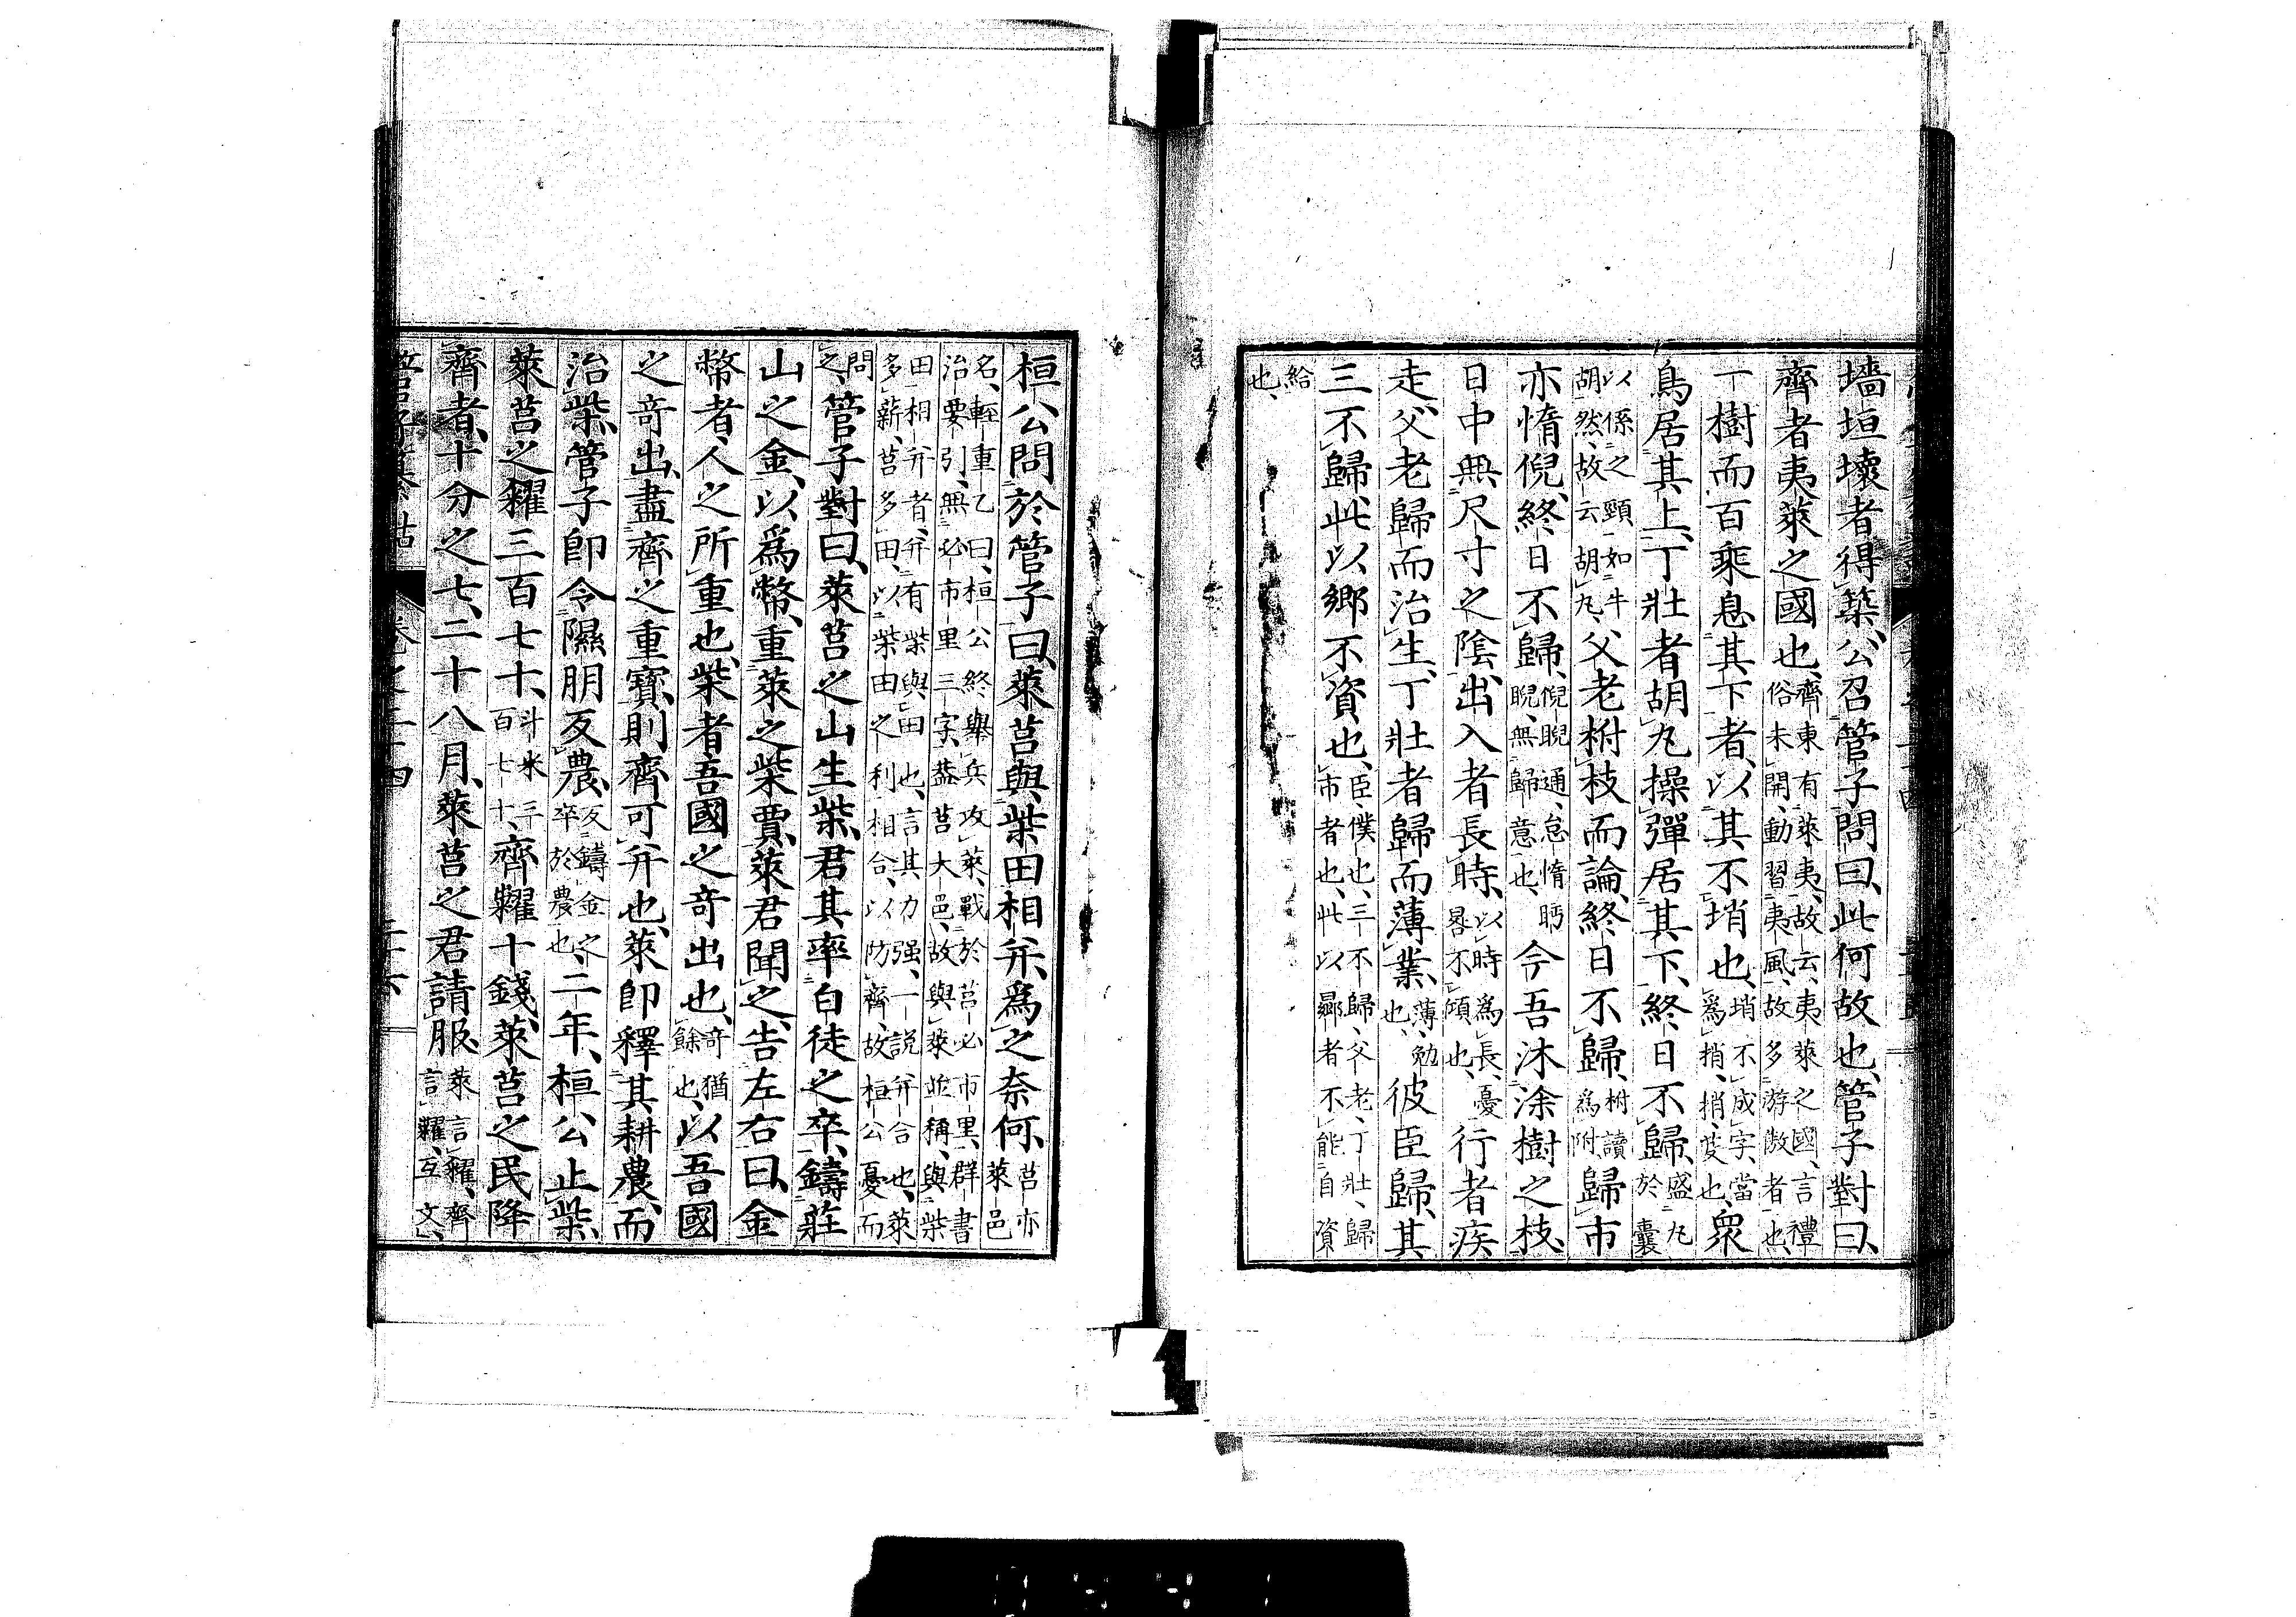 墻垣壞者得築、公召管子問曰、此何故也、管子對曰、
齊者夷萊之國也、齊東有萊夷、故云、夷萊之國、言禮俗未開、動習夷風、故多游敖者也、
一樹而百乘息其下者、以其不㨍也、㨍不成字、當爲捎、捎、芟也、衆
鳥居其上、丁壯者胡丸操彈居其下、終日不歸、盛丸於囊
以係之頸如牛胡然、故云胡丸、父老柎枝而論、終日不歸、柎讀爲附、歸市
亦惰倪、終日不歸、倪睨通、怠惰眄睨、無歸意也、今吾沐涂樹之枝、
日中無尺寸之陰、出入者長時、以時爲長、憂晷不傾也、行者疾
走、父老歸而治生、丁壯者歸而薄業、薄、勉也、彼臣歸、其
三不歸、此以鄉不資也、臣、僕也、三不歸、父老、丁壯、歸市者也、此以曏者不能自資
給也、
桓公問於管子曰、萊莒與柴田相并、爲之柰何、莒亦萊邑
名、輕重乙曰、桓公終舉兵攻萊、戰於莒必市里、群書治要引、無必市里三字、葢莒大邑、故與萊並稱、與柴
田相并者、并有柴與田也、言其力强、一說并合也、萊多薪、莒多田、以柴田之利相合、以防齊、故桓公憂而
問之、管子對曰、萊莒之山生柴、君其率白徒之卒、鑄莊
山之金、以爲幣、重萊之柴賈、萊君聞之、告左右曰、金
幣者、人之所重也、柴者、吾國之奇出也、奇猶餘也、以吾國
之奇出、盡齊之重寶、則齊可并也、萊卽釋其耕農、而
治柴、管子卽令隰朋反農、反鑄金之卒於農也、二年、桓公止柴、
萊莒之糴三百七十、斗米三百七十、齊糶十錢、萊莒之民降
齊者、十分之七、二十八月、萊莒之君請服、萊言糴、齊言糶、互文、
管子纂詁 卷之二十四